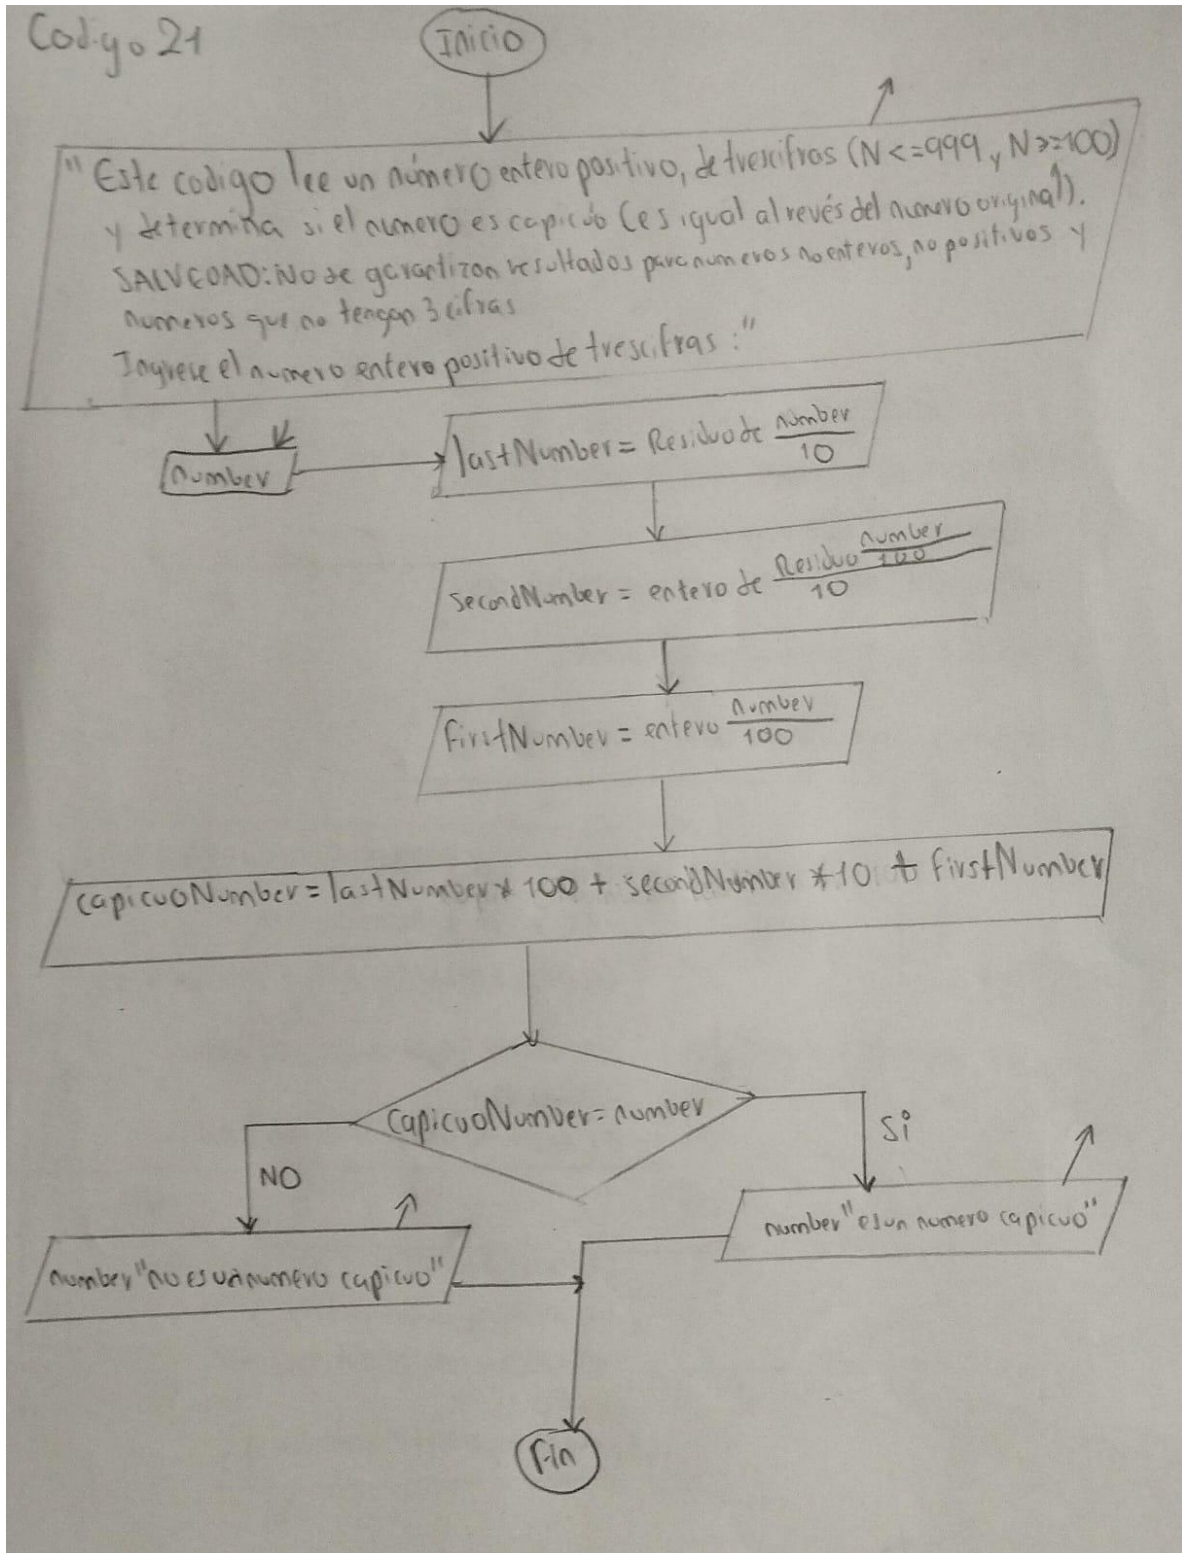 Codigo 21
Inicio
"Este codigo lee un número entero positivo, de tres cifras (N <= 999 y N >= 100)
y determina si el numero es capicúo (es igual al revés del numero original).
SALVEDAD: No se garantizan resultados para numeros no enteros, no positivos y
numeros que no tengan 3 cifras
Ingrese el numero entero positivo de tres cifras :"
number
lastNumber = Residuo de number/10
secondNumber = entero de Residuo number/100 / 10
firstNumber = entero number/100
capicuoNumber = lastNumber * 100 + secondNumber * 10 + firstNumber
CapicuoNumber = number
NO
Si
number "es un numero capicuo"
number "no es un numero capicuo"
Fin